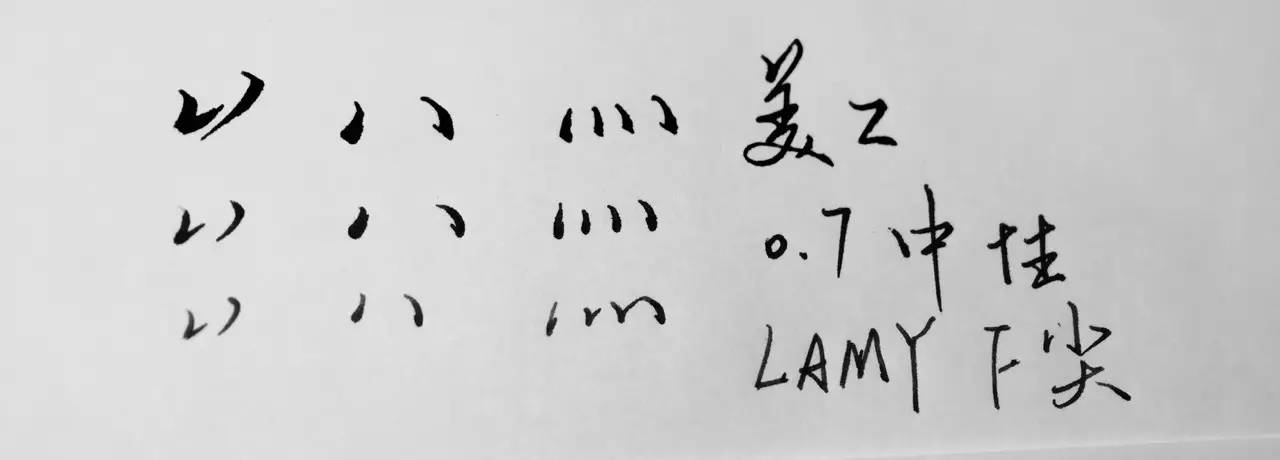 美工
0.7中性
LAMY F尖